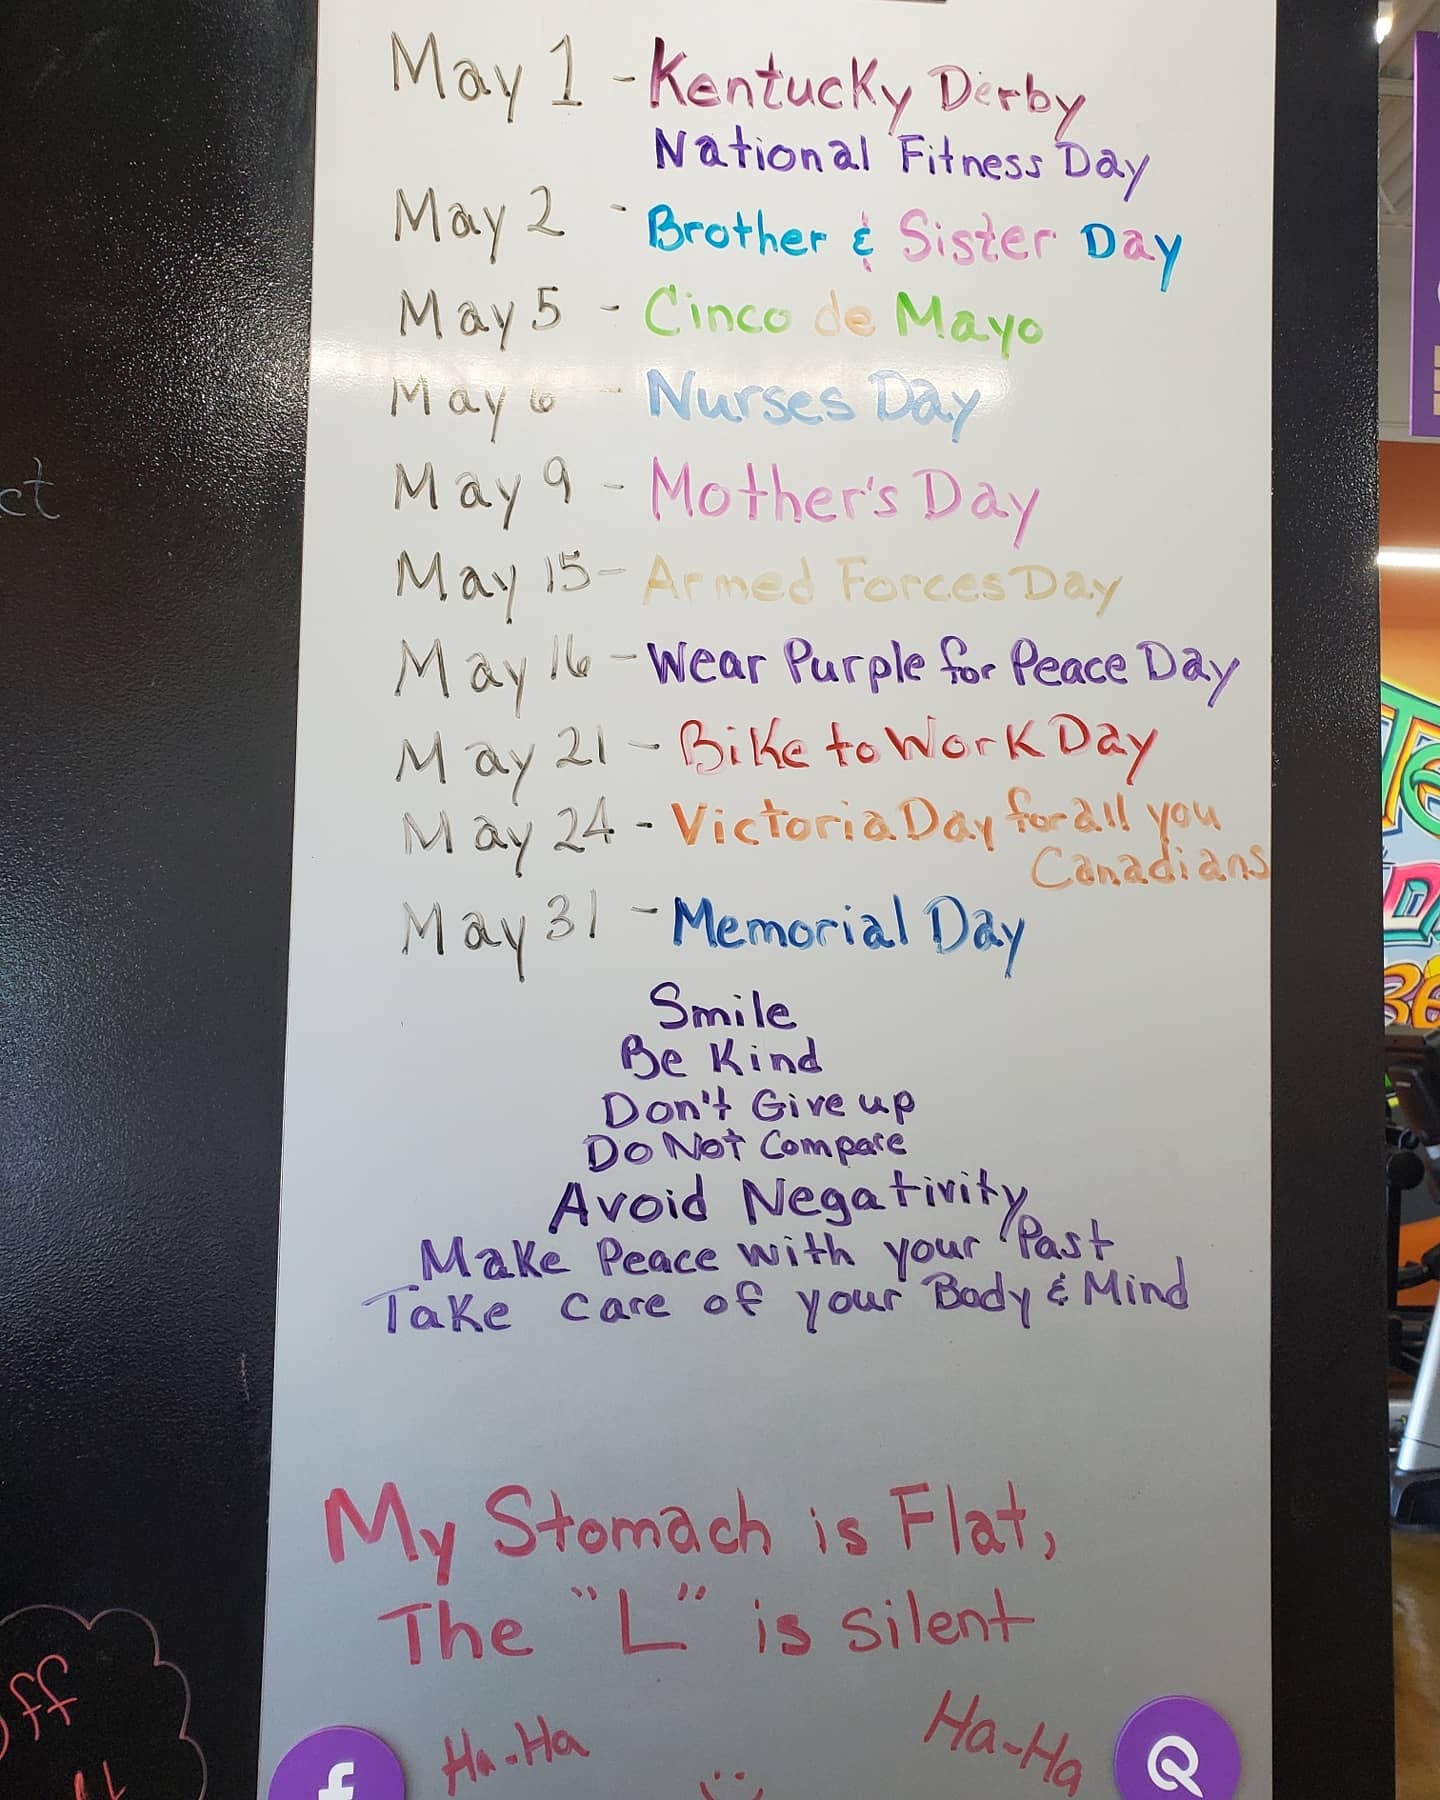 May 1 - Kentucky Derby
National Fitness Day
May 2 - Brother & Sister Day
May 5 - Cinco de Mayo
May 6 - Nurses Day
May 9 - Mother's Day
May 15 - Armed Forces Day
May 16 - Wear Purple for Peace Day
May 21 - Bike to Work Day
May 24 - Victoria Day for all you
Canadians
May 31 - Memorial Day
Smile
Be Kind
Don't Give up
Do Not Compare
Avoid Negativity
Make Peace with your Past
Take care of your Body & Mind
My Stomach is Flat,
The "L" is silent
Ha-Ha
Ha-Ha
ct
off
f